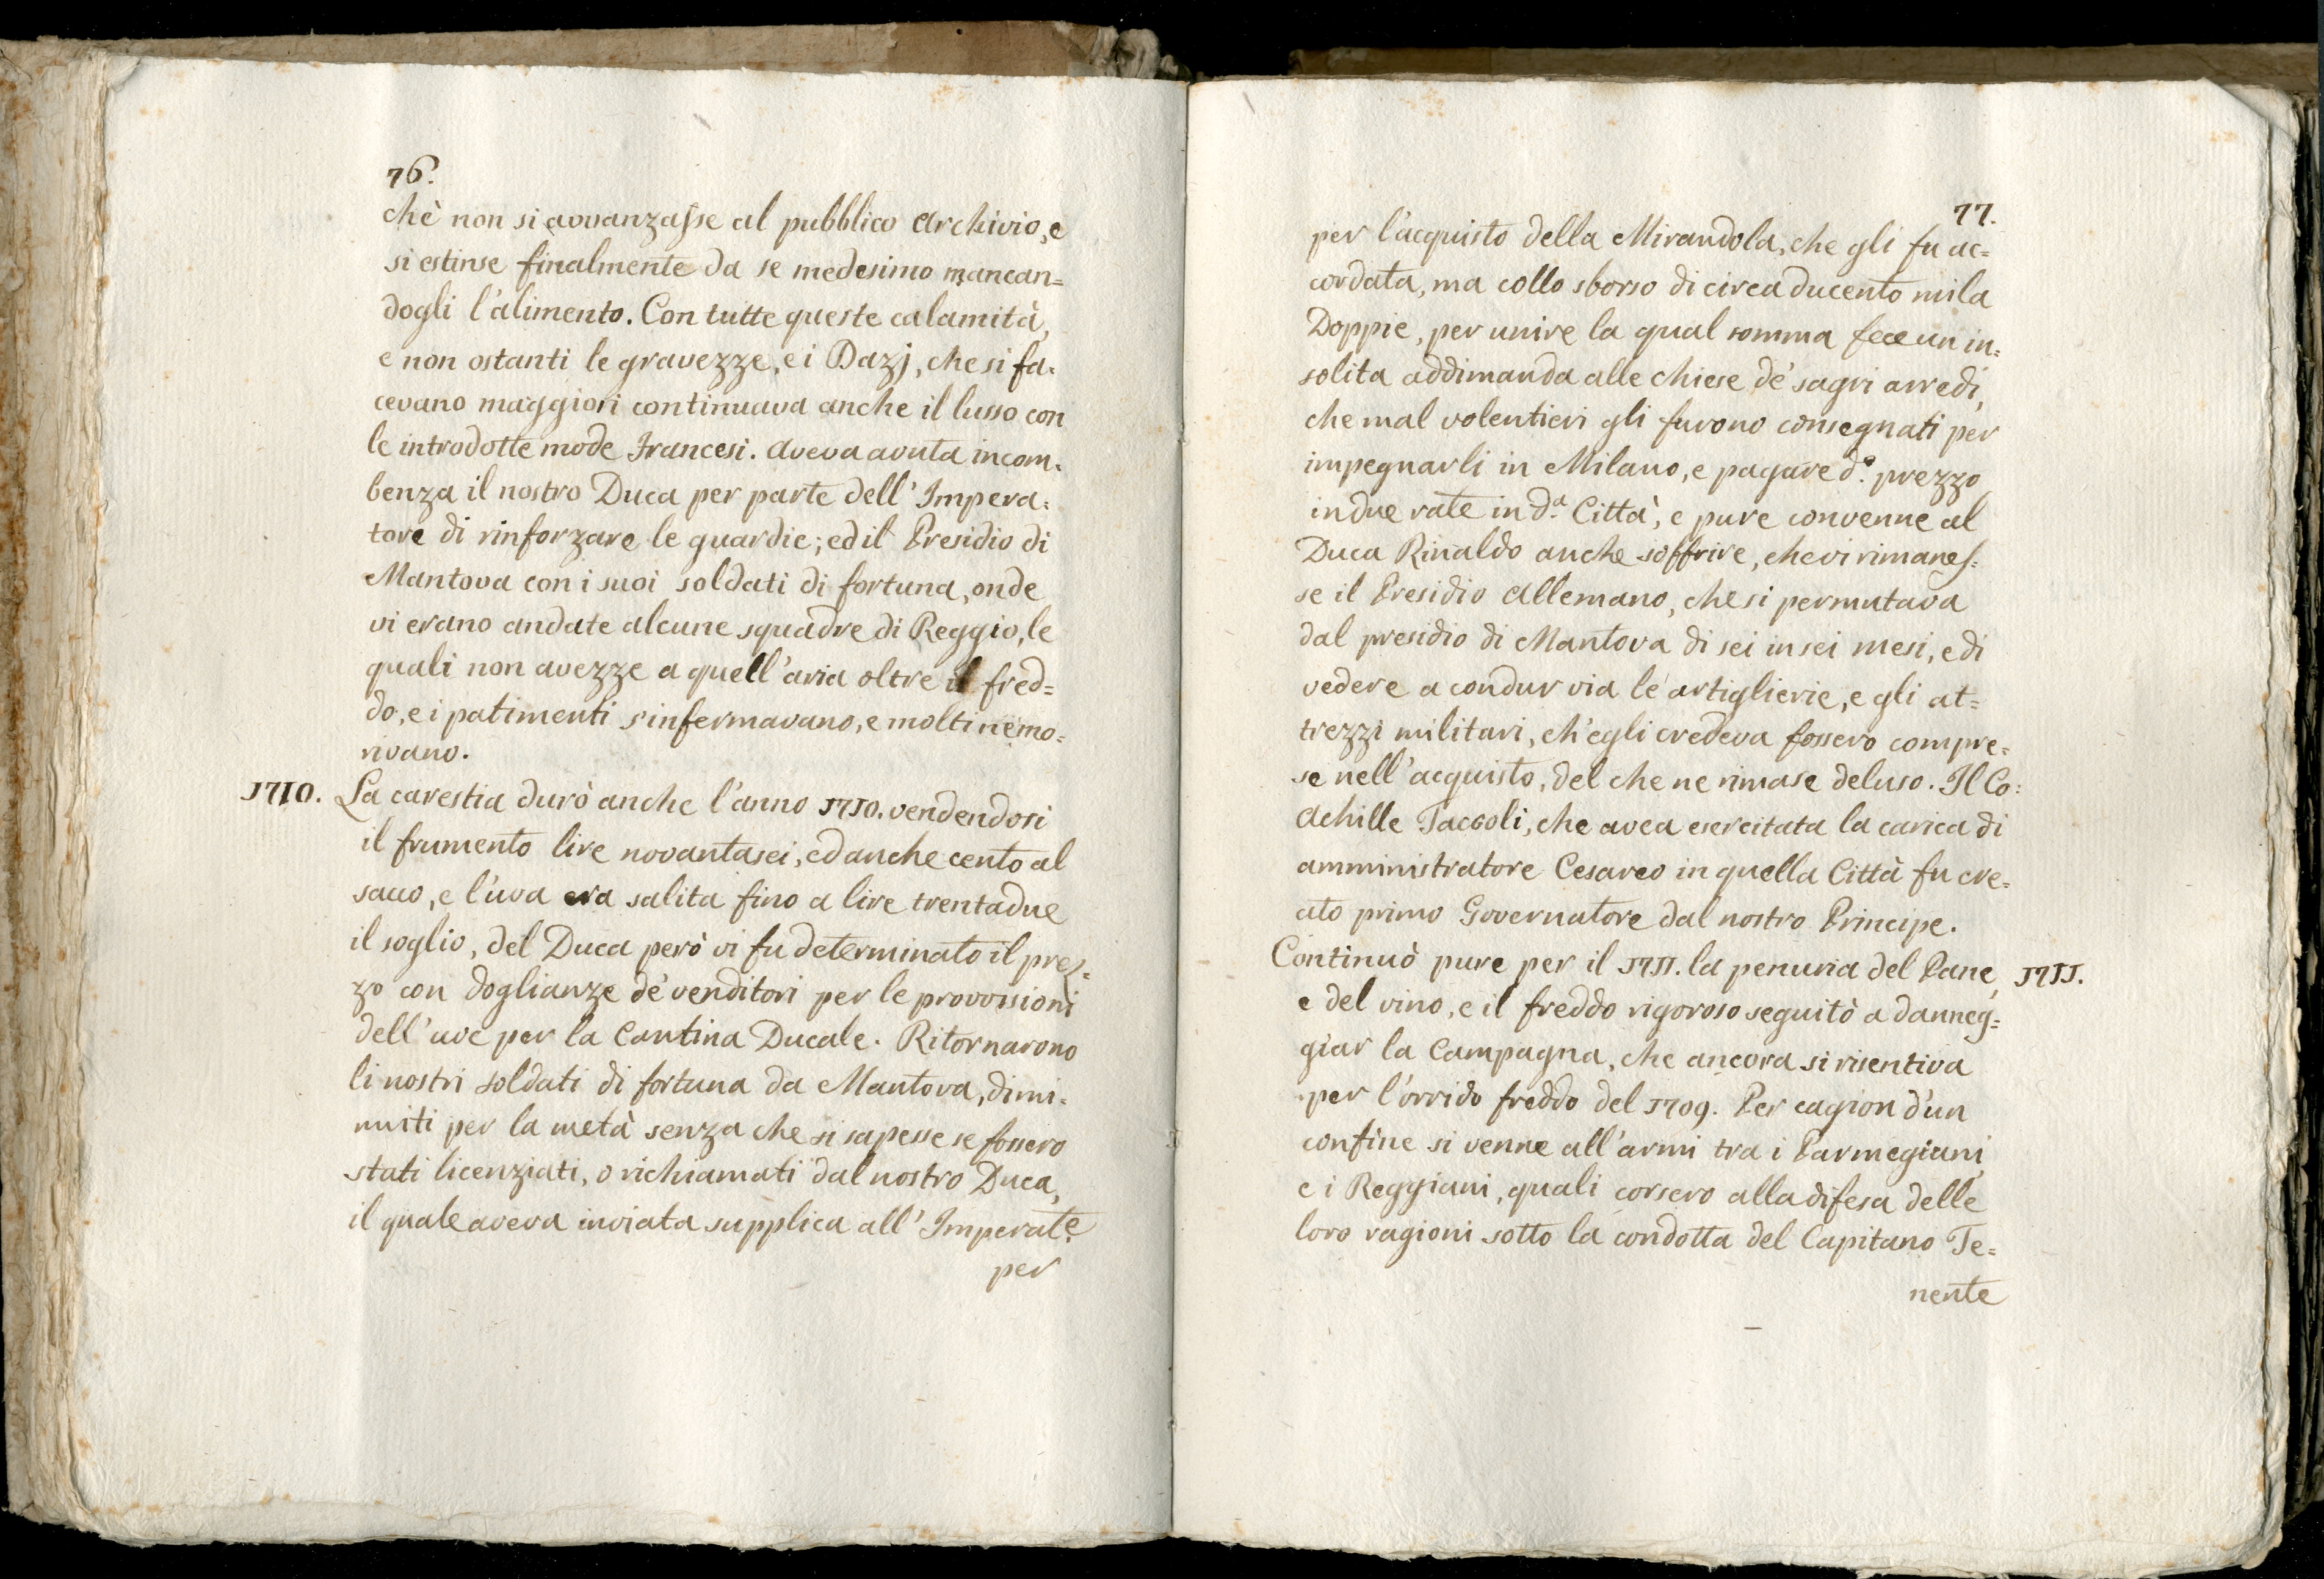 76.
chè non si avvanzasse al pubblico Archivio, e
si estinse finalmente da se medesimo mancan=
dogli l'alimento. Con tutte queste calamità,
e non ostanti le gravezze, e i Dazj, che si fa=
cevano maggiori continuava anche il lusso con
le introdotte mode Francesi. Aveva avuta incom=
benza il nostro Duca per parte dell'Impera=
tore di rinforzare le guardie; ed il Presidio di
Mantova con i suoi soldati di fortuna, onde
vi erano andate alcune squadre di Reggio, le
quali non avezze a quell'aria oltre il fred=
do, e i patimenti s'infermavano, e molti ne mo=
rivano.
1710. La carestia durò anche l'anno 1710. vendendosi
il frumento lire novantasei, ed anche cento al
sacco, e l'uva era salita fino a lire trentadue
il soglio, del Duca però vi fu determinato il prez=
zo con doglianze de' venditori per le provvisioni
dell'uve per la Cantina Ducale. Ritornarono
li nostri soldati di fortuna da Mantova, dimi=
nuiti per la metà senza che si sapesse se fossero
stati licenziati, o richiamati dal nostro Duca,
il quale aveva inviata supplica all'Imperat.e
per
77.
per l'acquisto della Mirandola, che gli fu ac=
cordata, ma collo sborso di circa ducento mila
Doppie, per unire la qual somma fece un in=
solita addimanda alle chiese de' sagri arredi,
che mal volentieri gli furono consegnati per
impegnarli in Milano, e pagare d.o prezzo
in due rate in d.a Città, e pure convenne al
Duca Rinaldo anche soffrire, che vi rimanes=
se il Presidio Allemano, che si permutava
dal presidio di Mantova di sei in sei mesi, e di
vedere a condur via le artiglierie, e gli at=
trezzi militari, ch'egli credeva fossero compre=
se nell'acquisto, del che ne rimase deluso. Il Co:
Achille Taccoli, che avea esercitata la carica di
amministratore Cesareo in quella Città fu cre=
ato primo Governatore dal nostro Principe.
Continuò pure per il 1711. la penuria del Pane, 1711.
e del vino, e il freddo rigoroso seguitò a danneg=
giar la Campagna, che ancora si risentiva
per l'orrido freddo del 1709. Per cagion d'un
confine si venne all'armi tra i Parmegiani,
e i Reggiani, quali corsero alla difesa delle
loro ragioni sotto la condotta del Capitano Te=
nente